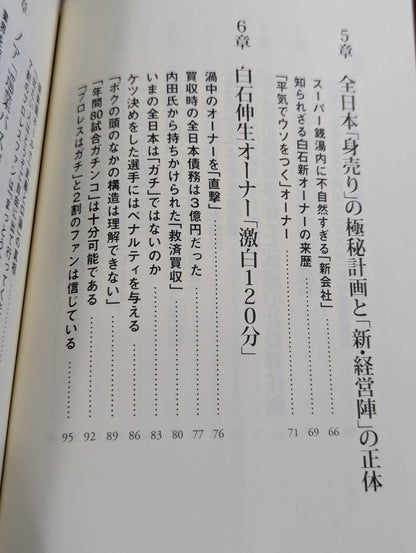 5章 全日本「身売り」の極秘計画と「新・経営陣」の正体
スーパー銭湯内に不自然すぎる「新会社」……66
知られざる白石新オーナーの来歴……69
「平気でウソをつく」オーナー……71
6章 白石伸生オーナー「激白120分」
渦中のオーナーを「直撃」……76
買収時の全日本債務は3億円だった……77
内田氏から持ちかけられた「救済買収」……80
いまの全日本は「ガチ」ではないのか……83
ケツ決めをした選手にはペナルティを与える……86
「ボクの頭のなかの構造は理解できない」……89
「年間80試合ガチンコ」は十分可能である……92
「プロレスはガチ」と2割のファンは信じている……95